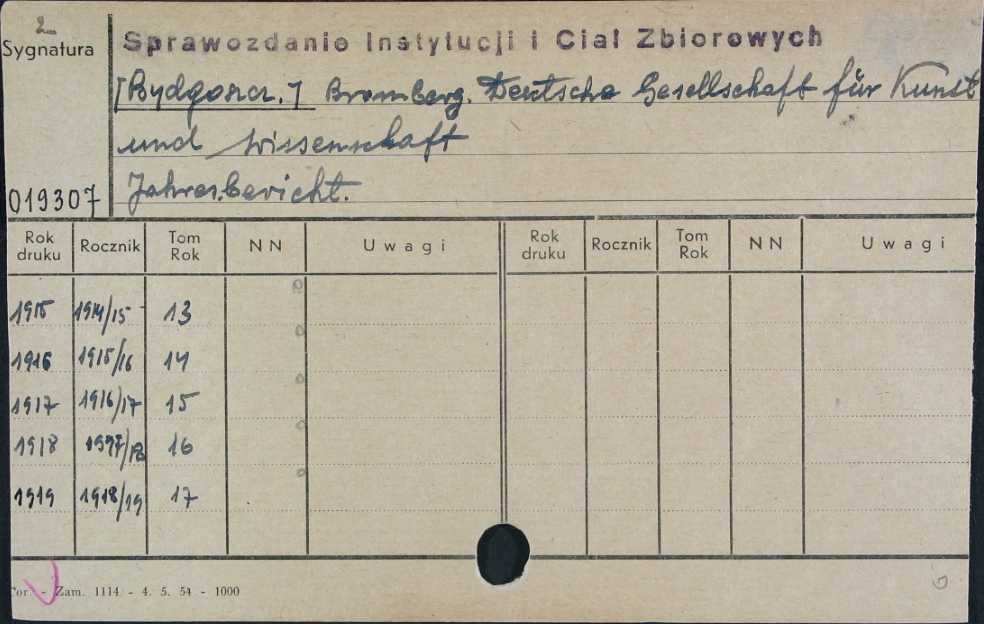 2
Sygnatura
Sprawozdanie Instytucji i Ciał Zbiorowych
[Bydgoszcz.] Bromberg. Deutsche Gesellschaft für Kunst
und Wissenschaft
019307
Jahresbericht.
Rok druku Rocznik Tom Rok NN Uwagi Rok druku Rocznik Tom Rok NN Uwagi
1915 1914/15 13
1916 1915/16 14
1917 1916/17 15
1918 1917/18 16
1919 1918/19 17
Zam. 1114 - 4. 5. 54 - 1000